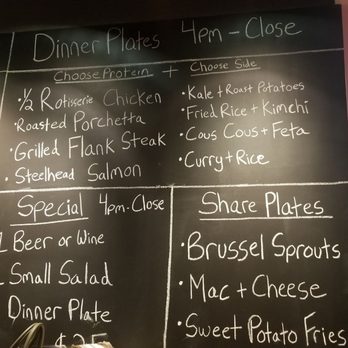 Dinner Plates 4pm - Close
Choose Protein + Choose Side
· 1/2 Rotisserie Chicken
· Roasted Porchetta
· Grilled Flank Steak
· Steelhead Salmon
· Kale + Roast Potatoes
· Fried Rice + Kimchi
· Cous Cous + Feta
· Curry + Rice
Special 4pm-Close
1 Beer or Wine
1 Small Salad
Dinner Plate
$25
Share Plates
· Brussel Sprouts
· Mac + Cheese
· Sweet Potato Fries